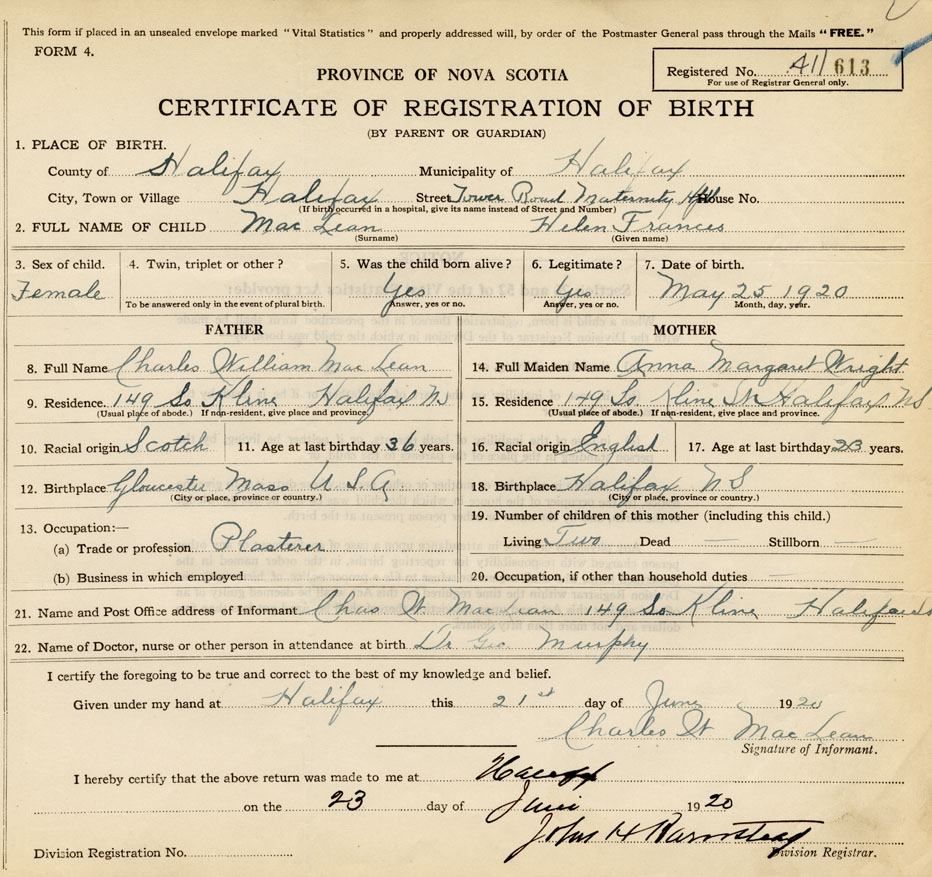 This form if placed in an unsealed envelope marked "Vital Statistics" and properly addressed will, by order of the Postmaster General pass through the Mails "FREE."
FORM 4.
Registered No. 41/ 613
For use of Registrar General only.
PROVINCE OF NOVA SCOTIA
CERTIFICATE OF REGISTRATION OF BIRTH
(BY PARENT OR GUARDIAN)
1. PLACE OF BIRTH.
County of Halifax Municipality of Halifax
City, Town or Village Halifax Street Tower Road Maternity House No.
(If birth occurred in a hospital, give its name instead of Street and Number)
2. FULL NAME OF CHILD Mac Lean Helen Frances
(Surname) (Given name)
3. Sex of child. 4. Twin, triplet or other ? 5. Was the child born alive ? 6. Legitimate ? 7. Date of birth.
Female Yes Yes May 25 1920
To be answered only in the event of plural birth. Answer, yes or no. Answer, yes or no. Month, day, year.
FATHER MOTHER
8. Full Name Charles William Mac Lean 14. Full Maiden Name Anna Margaret Wright
9. Residence. 149 So Kline Halifax NS 15. Residence 149 So Kline St Halifax NS
(Usual place of abode.) If non-resident, give place and province. (Usual place of abode.) If non-resident, give place and province.
10. Racial origin Scotch 11. Age at last birthday 36 years. 16. Racial origin English 17. Age at last birthday 23 years.
12. Birthplace Gloucester Mass U S A 18. Birthplace Halifax N S
(City or place, province or country.) (City or place, province or country.)
13. Occupation:— 19. Number of children of this mother (including this child.)
(a) Trade or profession Plasterer Living Two Dead — Stillborn —
(b) Business in which employed 20. Occupation, if other than household duties —
21. Name and Post Office address of Informant Chas W MacLean 149 So Kline Halifax NS
22. Name of Doctor, nurse or other person in attendance at birth Dr Geo Murphy
I certify the foregoing to be true and correct to the best of my knowledge and belief.
Given under my hand at Halifax this 21st day of June 1920
Charles W Mac Lean
Signature of Informant.
I hereby certify that the above return was made to me at Halifax
on the 23 day of June 1920
John H Barnstead
Division Registration No. Division Registrar.